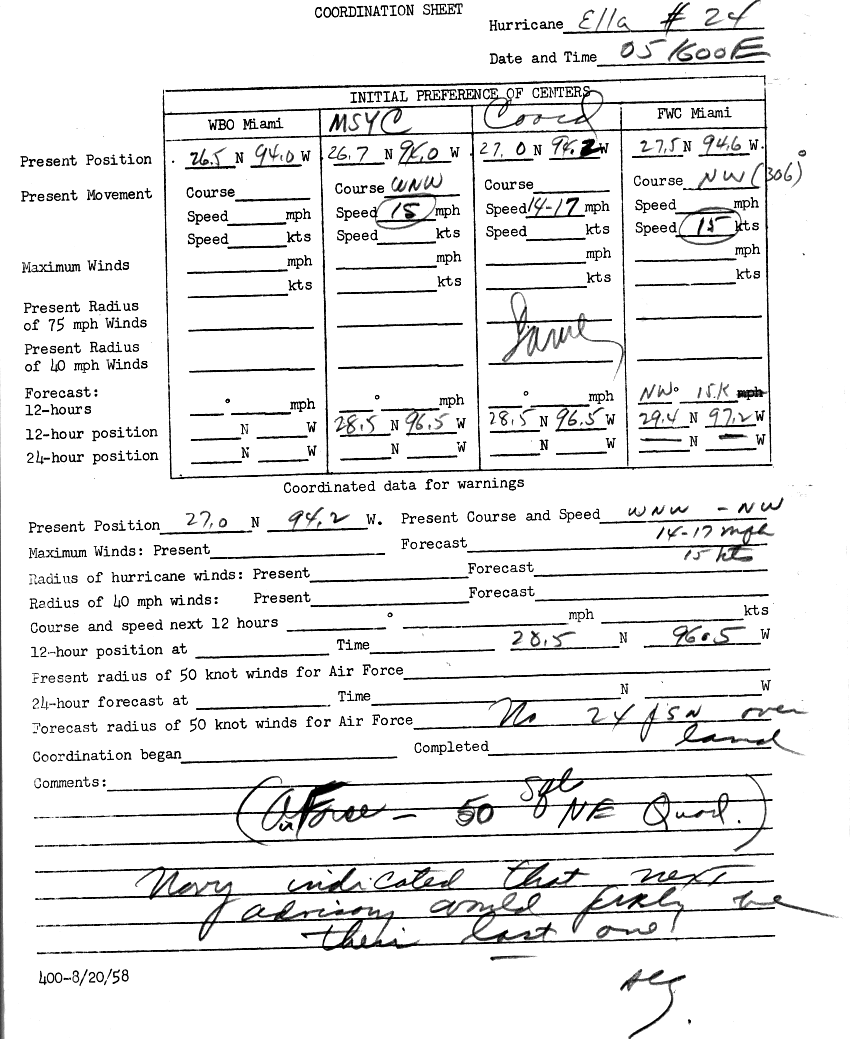 COORDINATION SHEET
Hurricane Ella # 24
Date and Time 05 1600E
INITIAL PREFERENCE OF CENTERS
WBO Miami MSYC Coord FWC Miami
Present Position 26.5 N 94.0 W 26.7 N 94.0 W 27.0 N 94.2 W 27.5 N 94.6 W.
Present Movement Course Course WNW Course Course NW (306)°
Speed mph Speed 15 mph Speed 14-17 mph Speed mph
Speed kts Speed kts Speed kts Speed 15 kts
Maximum Winds mph mph mph mph
kts kts kts kts
Present Radius
of 75 mph Winds
Same
Present Radius
of 40 mph Winds
Forecast:
12-hours ° mph ° mph ° mph NW° 15 K mph
12-hour position N W 28.5 N 96.5 W 28.5 N 96.5 W 29.4 N 97.2 W
24-hour position N W N W N W — N — W
Coordinated data for warnings
Present Position 27.0 N 94.2 W. Present Course and Speed WNW - NW
14-17 mph
Maximum Winds: Present Forecast 15 kts
Radius of hurricane winds: Present Forecast
Radius of 40 mph winds: Present Forecast
Course and speed next 12 hours ° mph kts
12-hour position at Time 28.5 N 96.5 W
Present radius of 50 knot winds for Air Force
24-hour forecast at Time N W
Forecast radius of 50 knot winds for Air Force No 24 psn over
land
Coordination began Completed
Comments:
(Air Force - 50 NE Quad.)
Navy indicated that next
advisory would be
their last one!
400-8/20/58